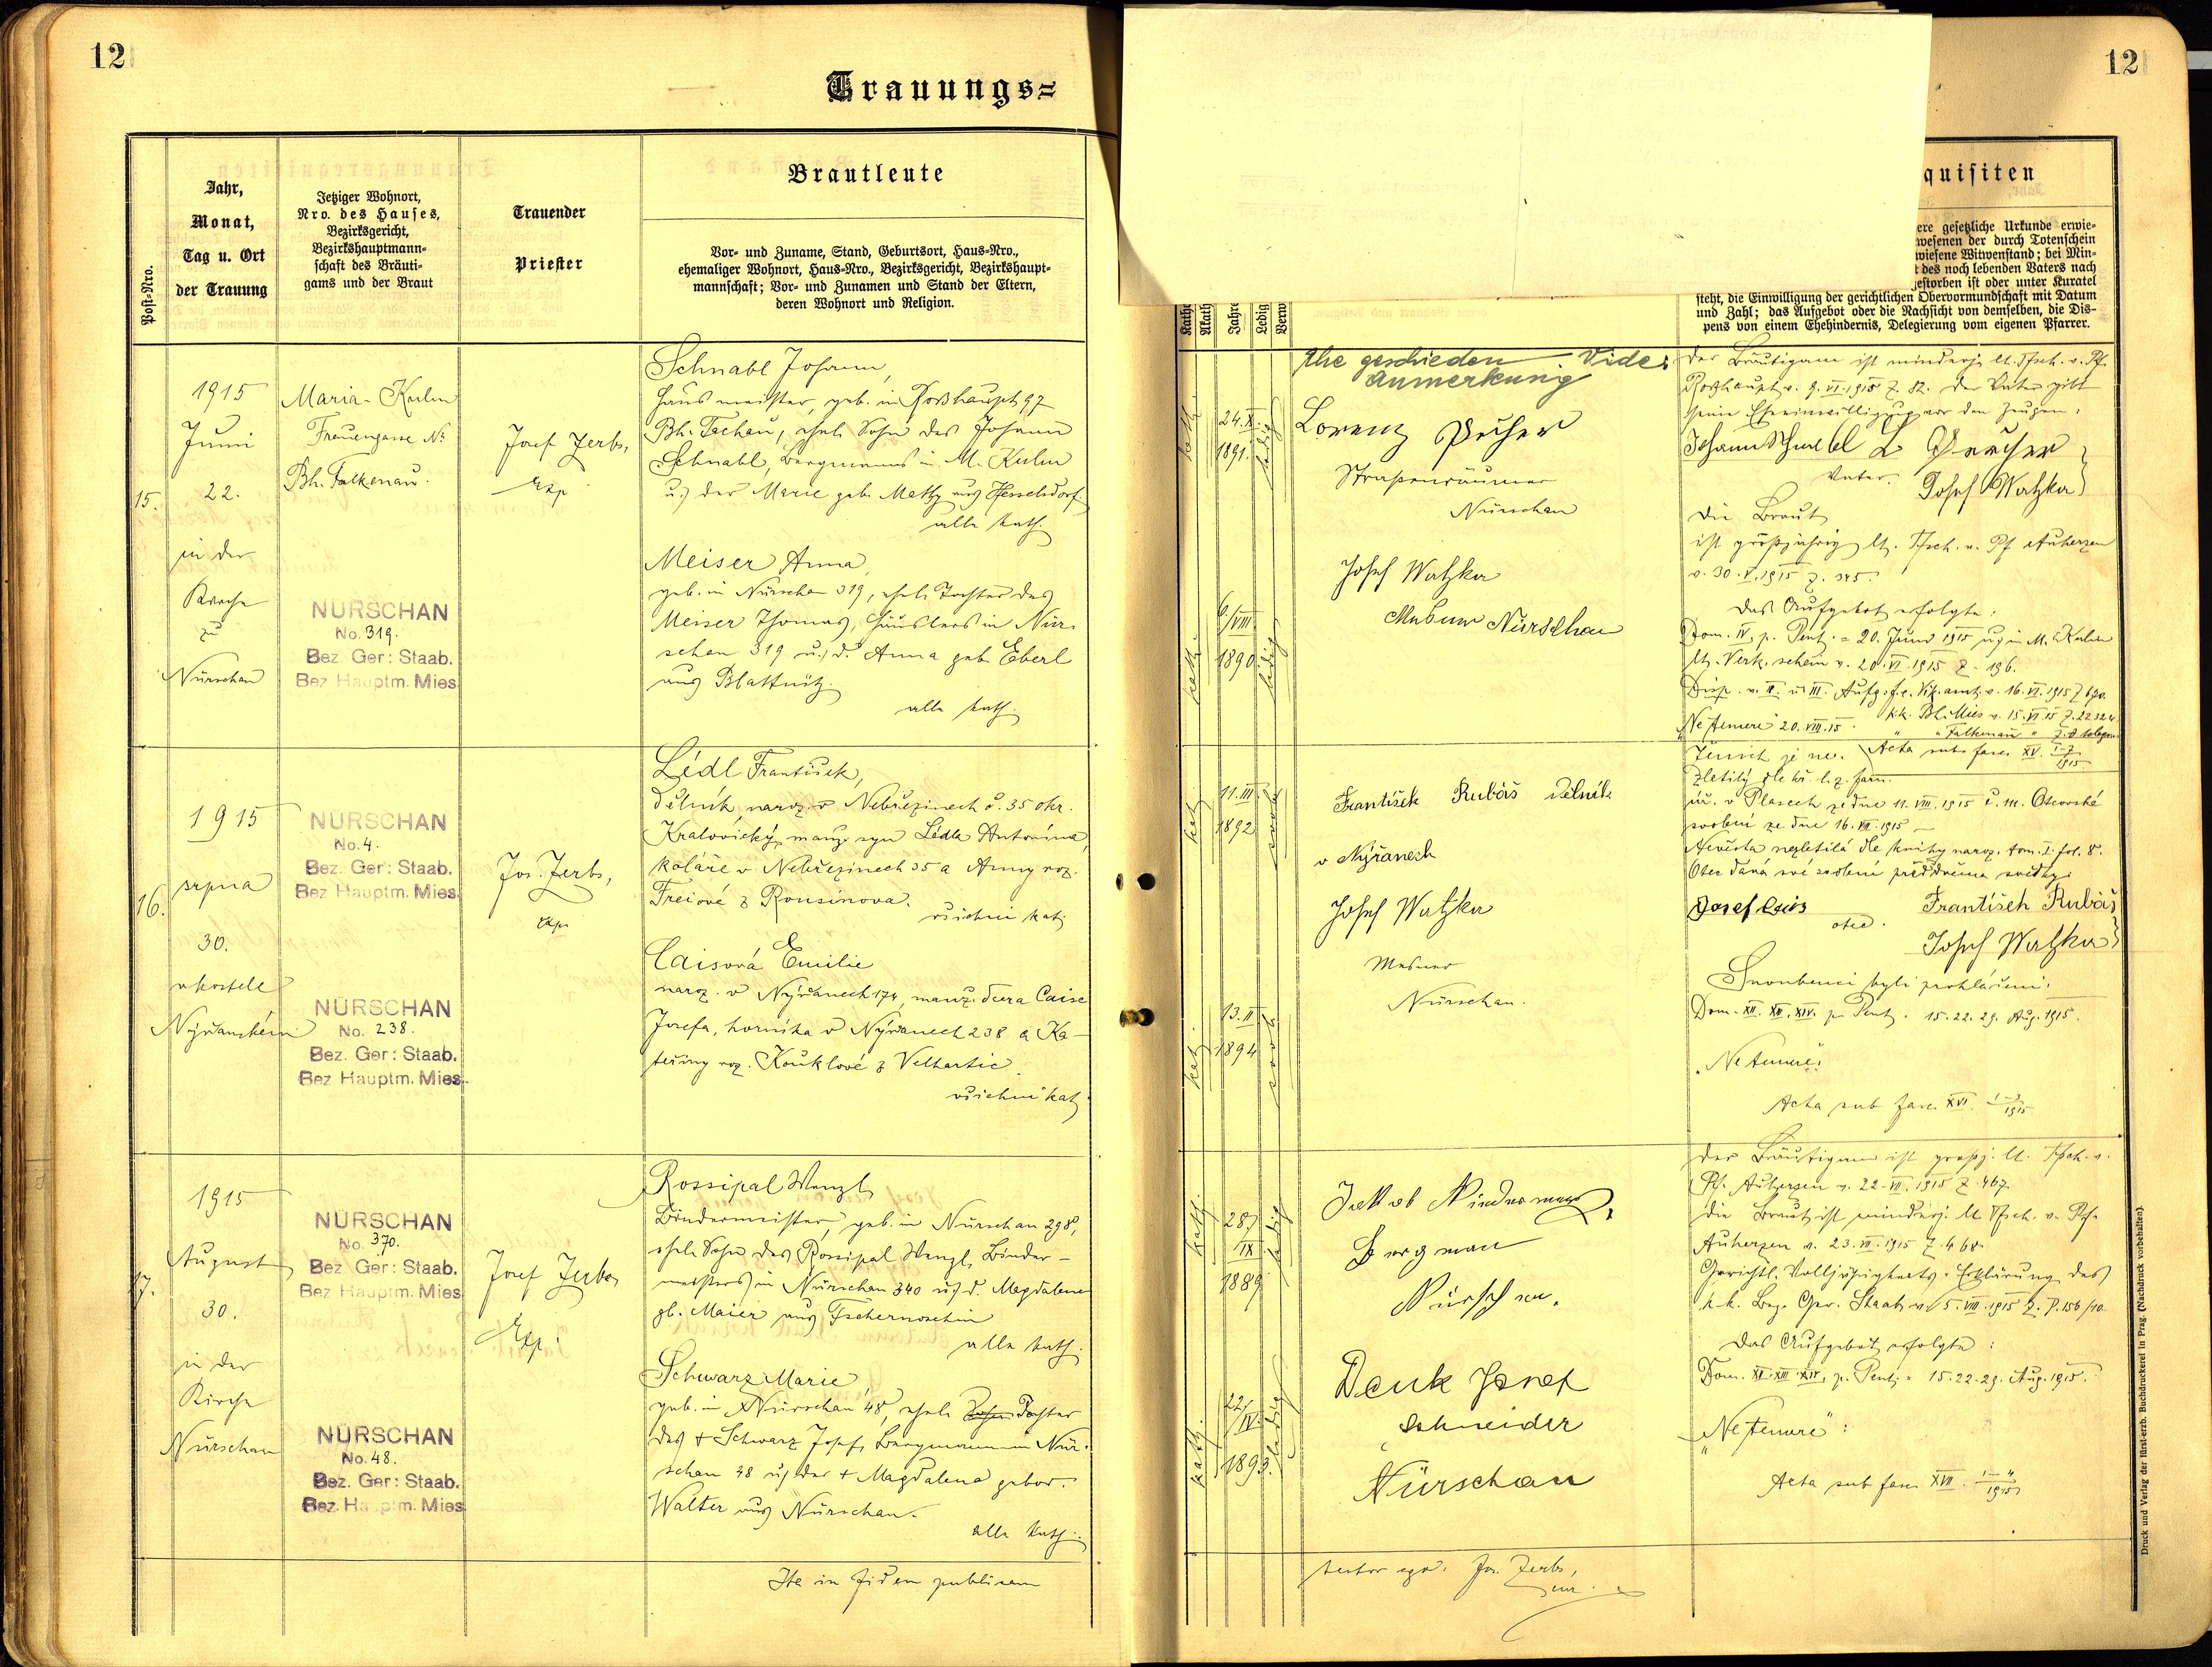 12
Trauungs=
Post=Nro.
Jahr,
Monat,
Tag u. Ort
der Trauung
Jetziger Wohnort,
Nro. des Hauses,
Bezirksgericht,
Bezirkshauptmann=
schaft des Bräuti=
gams und der Braut
Trauender
Priester
Brautleute
Vor= und Zuname, Stand, Geburtsort, Haus=Nro.,
ehemaliger Wohnort, Haus=Nro., Bezirksgericht, Bezirkshaupt=
mannschaft; Vor= und Zunamen und Stand der Eltern,
deren Wohnort und Religion.
15.
1915
Juni
22.
in der
Kirche
zu
Nürschan
Maria-Kulm
Frauengasse №
Bh. Falkenau.
NÜRSCHAN
No. 319.
Bez. Ger: Staab.
Bez Hauptm. Mies
Josef Zerbs,
Exp
Schnabl Johann,
Hausmeister, geb. in Roßhaupt 97
Bh. Tachau, ehel. Sohn des Johann
Schnabl, Bergmanns in M. Kulm
u. der Marie geb. Mathy aus Hesselsdorf.
alle kath.
Meiser Anna,
geb. in Nürschan 319, ehel. Tochter des
Meiser Thomas, Häuslers in Nür-
schan 319 u. d. Anna geb. Eberl
aus Blattnitz.
alle kath.
16.
1915
srpna
30.
v kostele
Nýřanském
NÜRSCHAN
No. 4.
Bez. Ger: Staab.
Bez Hauptm. Mies
NÜRSCHAN
No. 238.
Bez. Ger: Staab.
Bez Hauptm. Mies
Jos. Zerbs,
exp.
Lédl František,
dělník naroz. v Nebřezinech č. 35 okr.
Kralovický, manž. syn Lédla Antonína,
koláře v Nebřezinech 35 a Anny roz.
Freiové z Rousinova.
všichni kat.
Caisová Emilie
naroz. v Nýřanech 174, manž. dcera Caise
Josefa, horníka v Nýřanech 238 a Ka-
teřiny roz. Kouklové z Velhartic.
všichni kat.
17.
1915
August
30.
in der
Kirche
Nürschan
NÜRSCHAN
No. 370.
Bez Ger: Staab.
Bez Hauptm. Mies
NÜRSCHAN
No. 48.
Bez. Ger: Staab.
Bez. Hauptm. Mies
Josef Zerbs
Exp.
Rossipal Wenzl,
Bindermeister, geb. in Nürschan 298,
ehel. Sohn des Rossipal Wenzl, Binder-
meisters in Nürschan 340 u. d. Magdalena
gb. Maier aus Tschernoschin
alle kath.
Schwarz Marie
geb. in Nürschan 48, ehel. Tochter
des + Schwarz Josef, Bergmann in Nür-
schan 48 u. der + Magdalena gebor.
Walter aus Nürschan.
alle kath.
Ita in fidem publicam
12
quisiten
ere gesetzliche Urkunde erwie=
wesenen der durch Totenschein
wiesene Witwenstand; bei Min=
t des noch lebenden Vaters nach
gestorben ist oder unter Kuratel
steht, die Einwilligung der gerichtlichen Obervormundschaft mit Datum
und Zahl; das Aufgebot oder die Nachsicht von demselben, die Dis=
pens von einem Ehehindernis, Delegierung vom eigenen Pfarrer.
Kath
Jahre
Ledig
Verw
kath.
24. X.
1891.
ledig
6./VIII.
1890
kath.
ledig
Ehe geschieden Vide:
Anmerkung
Lorenz Pecher
Straßenräumer
Nürschan
Josef Watzka
Mesner Nürschan
Der Bräutigam ist minderj. lt. Tfsch. v. Pf.
Roßhaupt v. 9. VI. 1915 Z. 82. Der Vater gibt
seine Eheeinwilligung vor den Zeugen:
Johann Schnabl L Pecher
Vater. Josef Watzka
Die Braut
ist großjährig lt. Tfsch. v. Pf Auherzen
v. 30. V. 1915 Z. 345.
Das Aufgebot erfolgte:
Dom. IV. p. Pent. = 20. Juni 1915 u. in M. Kulm
lt. Verk. schein v. 20. VI. 1915 Z. 196.
Disp. v. II. u. III. Aufg. f.e. Vik. amt v. 16. VI. 1915 Z 690.
k.k. Bh. Mies v. 15. VI. 15 Z. 22324
"Ne temere" 20. VIII. 15. " " Falkenau "
Acta sub fasc. XV. 1-7/1915
kat.
11. III.
1892
13. II
1894
kat.
František Rubáš dělník
v Nýřanech
Josef Watzka
Mesner
Nürschan.
Ženich je
zletilý dle kř. l. z farn.
úř. v Plasech ze dne 11. VIII. 1915 č. 111. Otcovské
svolení ze dne 16. VIII. 1915
Nevěsta nezletilá dle knihy naroz. tom. I. fol. 8.
Otec dává své svolení před dvěma svědky:
Josef Cais František Rubáš
otec. Josef Watzka
Snoubenci byli prohlášeni:
Dom. XII. XIII. XIV. p. Pent. 15. 22. 29. Aug. 1915.
"Ne temere".
Acta sub fasc. XVI. 1-3/1915
kath.
28./
IX
1889
ledig
22./
IV.
1893.
kath.
ledig
Jakob Niedermayer,
Bergman
Nürschan.
Denk Josef
Schneider
Nürschan
Der Bräutigam ist großj. lt. Tfsch. v.
Pf. Auherzen v. 22. VII. 1915 Z. 467.
Die Braut ist minderj. lt Tfsch. v. Pf.
Auherzen v. 23. VII. 1915 Z. 468.
Gerichtl. Volljährigkeits-Erklärung des
k.k. Bez. Ger. Staab v. 5. VIII. 1915 Z. P. 156/10
Das Aufgebot erfolgte:
Dom. XII. XIII. XIV. p. Pent. = 15. 22. 29. Aug. 1915.
"Ne temere":
Acta sub fasc. XVII. 1-4/1915
testor ego: Jos. Zerbs,
Druck und Verlag der fürst-erzb. Buchdruckerei in Prag. (Nachdruck vorbehalten).